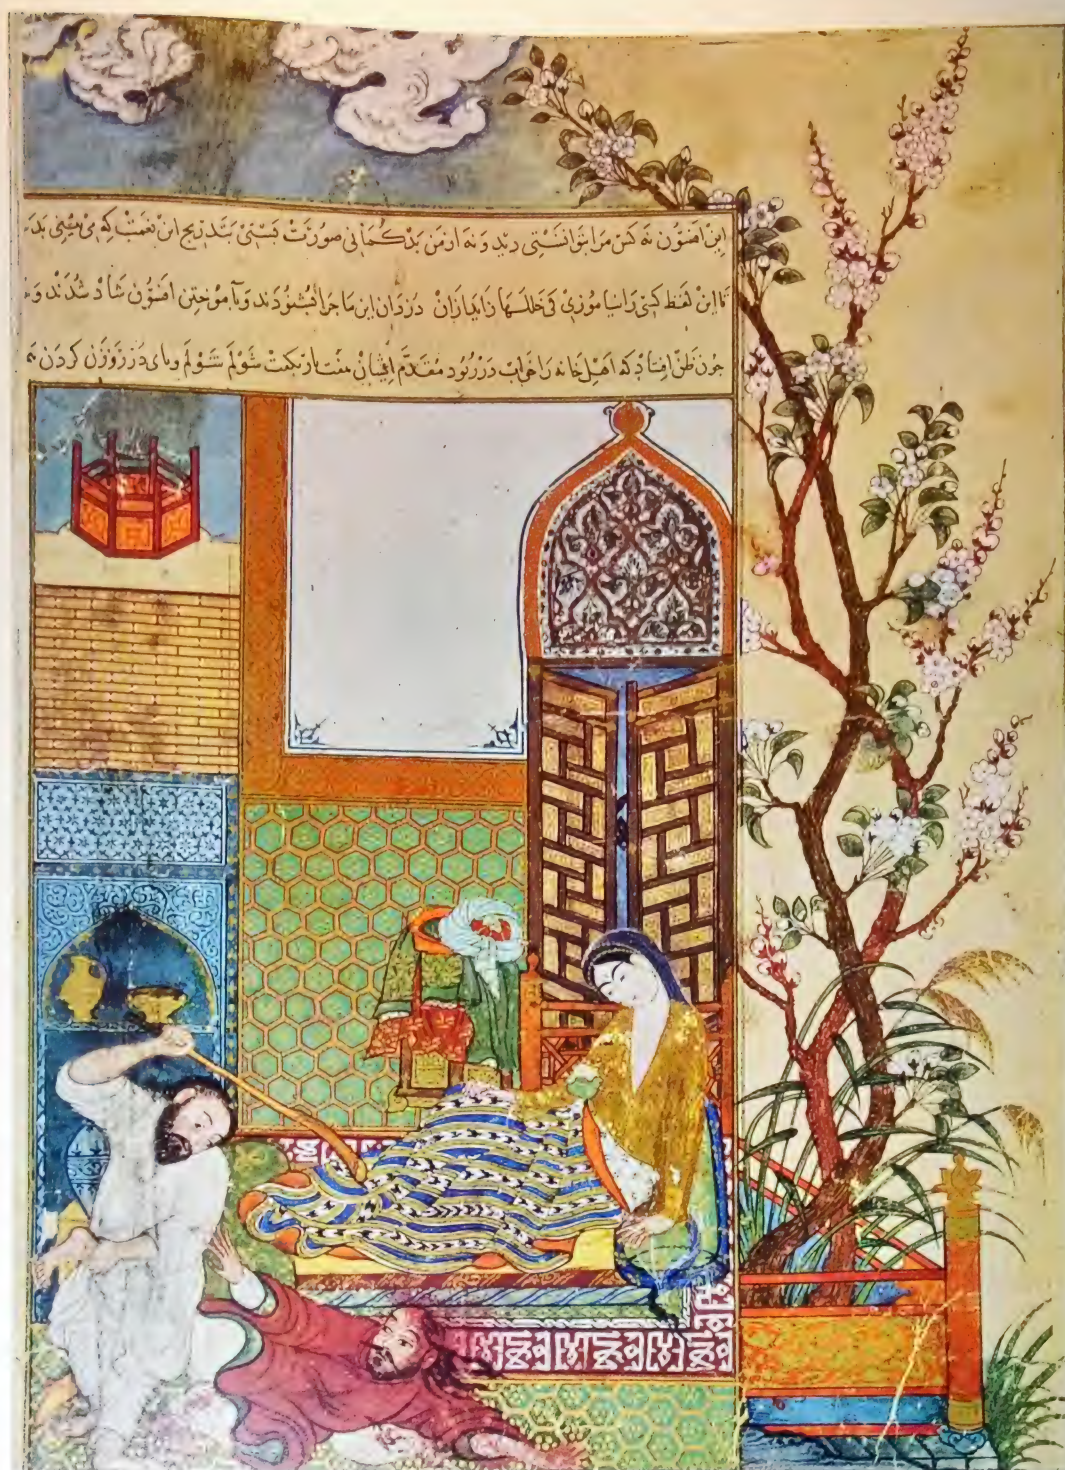 این افسون نه کس مرا بتوانستی دید و نه از من بدگمانی صورت بستی بتدریج این نعمت که می بینی بد
تا این لفظ کسی را نیاموزی که خللها زاید ازان دزدان این ماجرا بشنودند و بآموختن افسون شاد شدند و
چون ظن افتاد که اهل خانه را خواب در ربود مقدم ایشان هفت بار بگفت شولم شولم و پای در روزن کردن